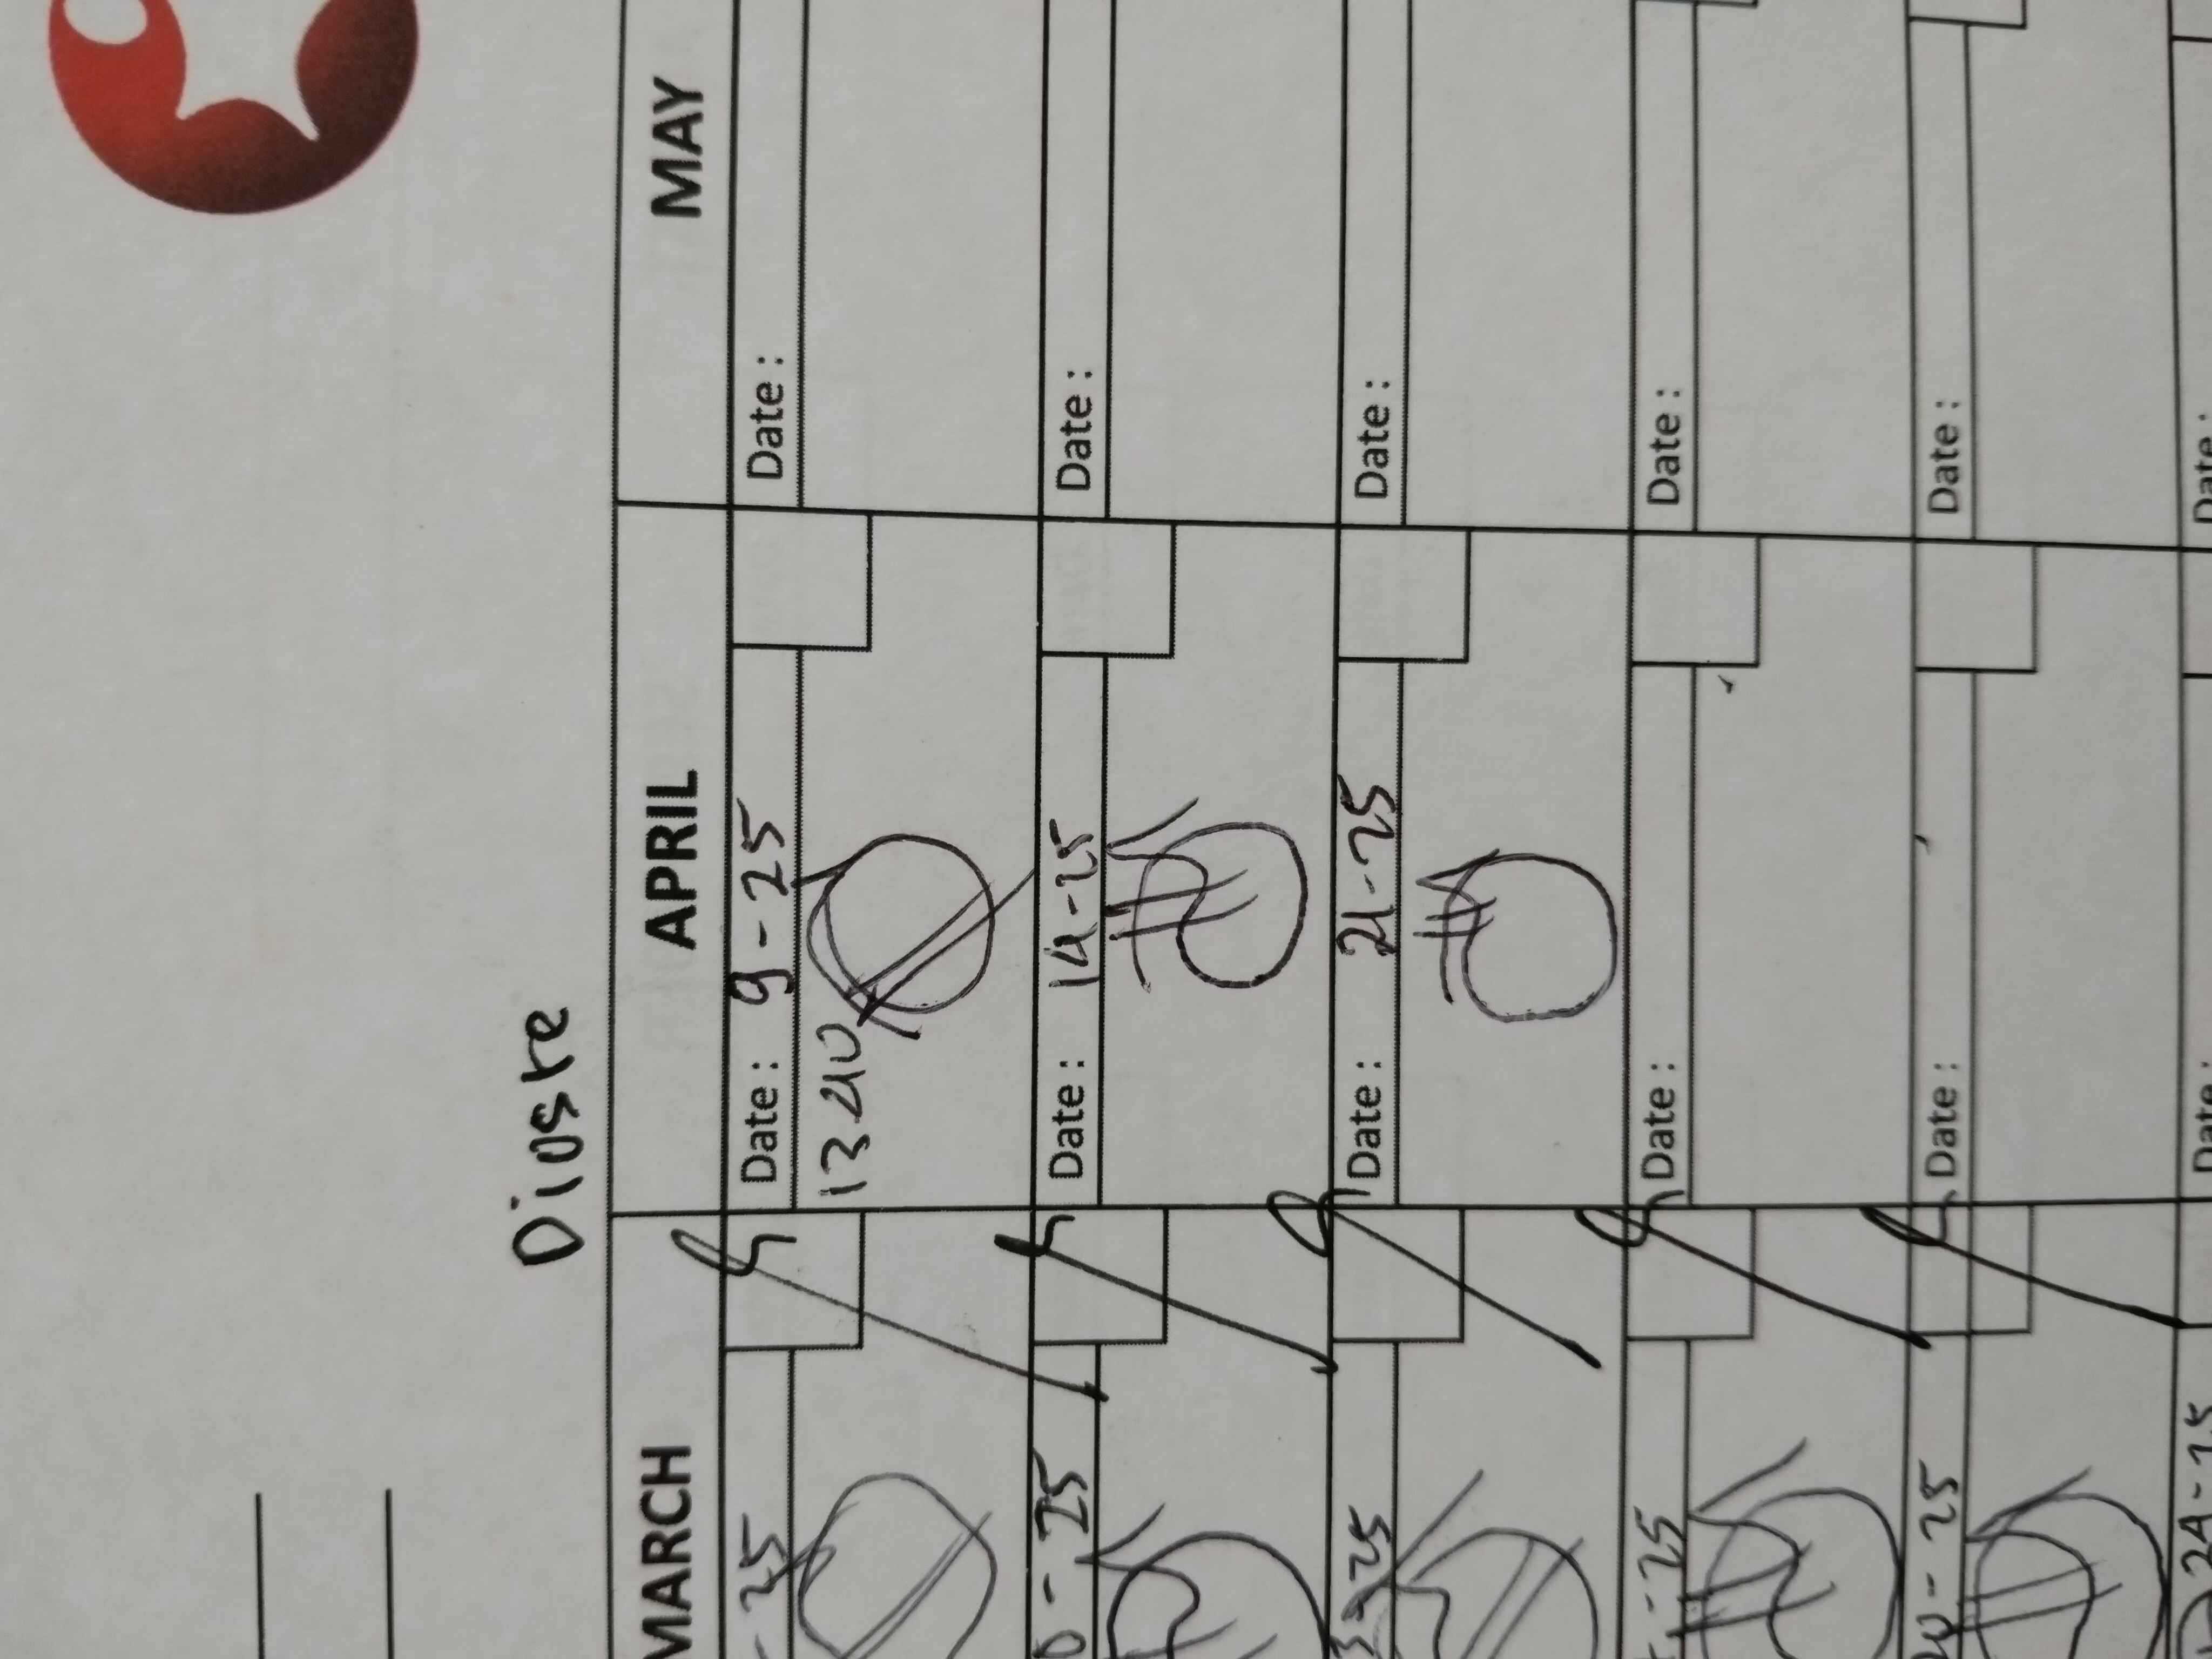 Diuste
MARCH APRIL MAY
25 Date : 9-25 Date :
13240
- 25 Date : 14-25 Date :
25 Date : 21-25 Date :
- 25 Date : Date :
20 - 25 Date : Date :
24-25 Date : Date :